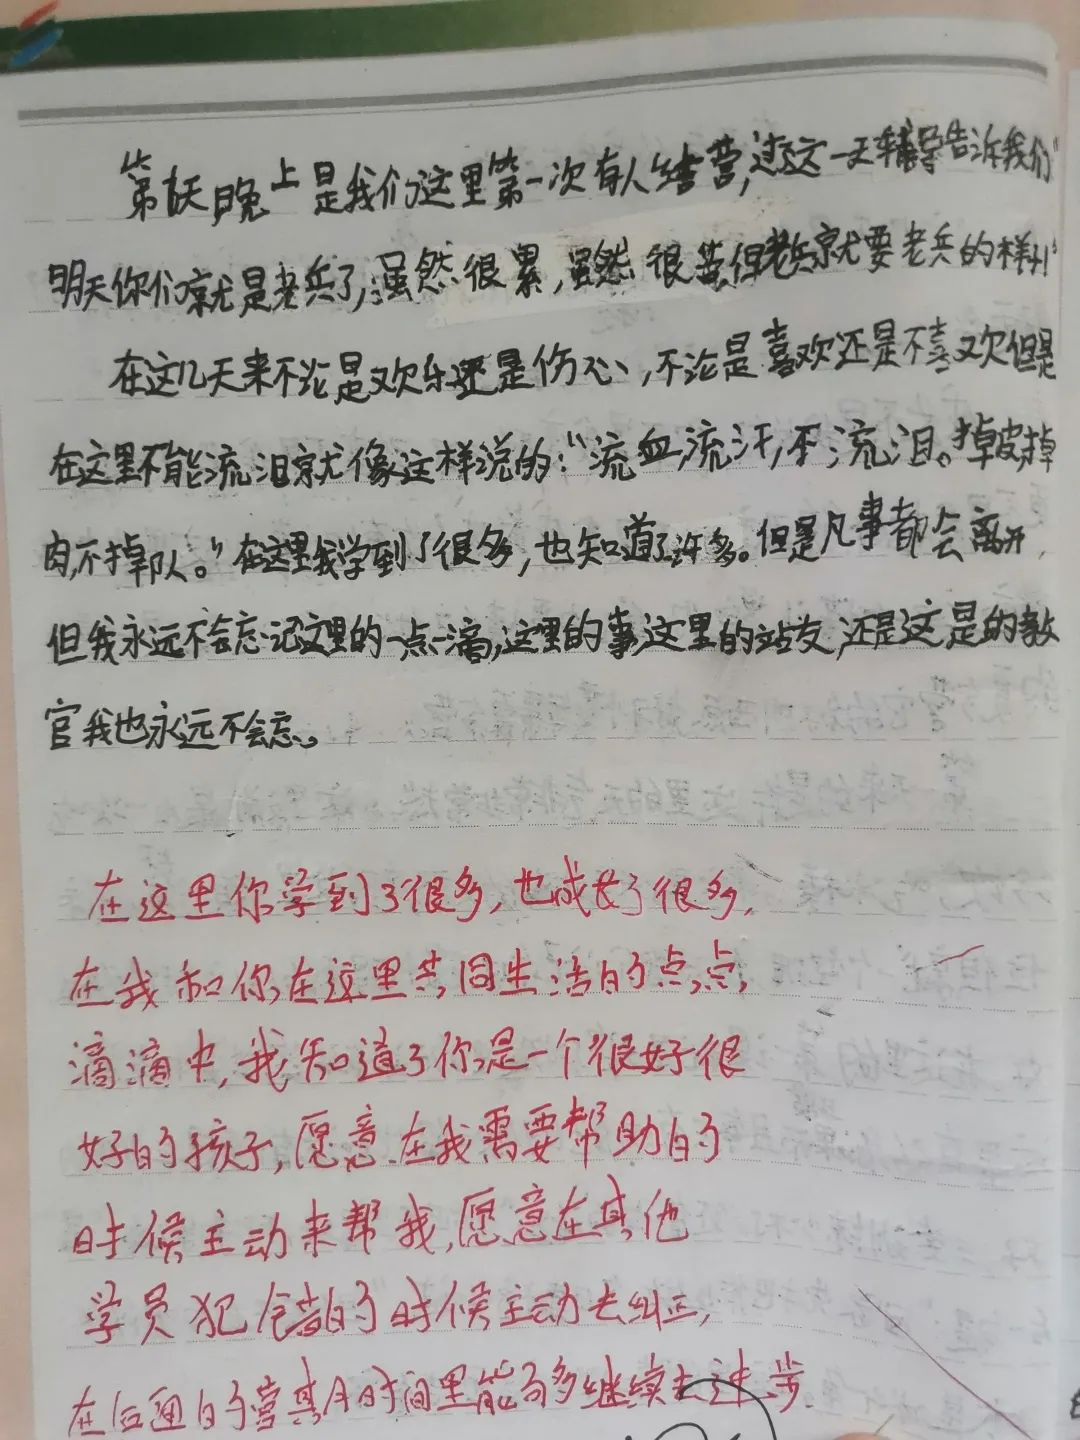 第天晚上是我们这里第一次有人结营,过了这一天辅导告诉我们"
明天你们就是老兵了,虽然很累,虽然很苦,但老兵就要老兵的样!"
在这几天来不论是欢乐还是伤心,不论是喜欢还是不喜欢但是
在这里不能流泪就像这样说的:"流血,流汗,不流泪。掉皮,掉
肉,不掉队。"在这里我学到了很多,也知道了许多。但是凡事都会离开,
但我永远不会忘记这里的一点一滴,这里的事,这里的战友,还是这是的教
官我也永远不会忘。
在这里你学到了很多,也成长了很多,
在我和你在这里共同生活的点点
滴滴中,我知道了你是一个很好很
好的孩子,愿意在我需要帮助的
时候主动来帮我,愿意在其他
学员犯错的时候主动去纠正,
在后面的营其月时间里能够多继续去进步.